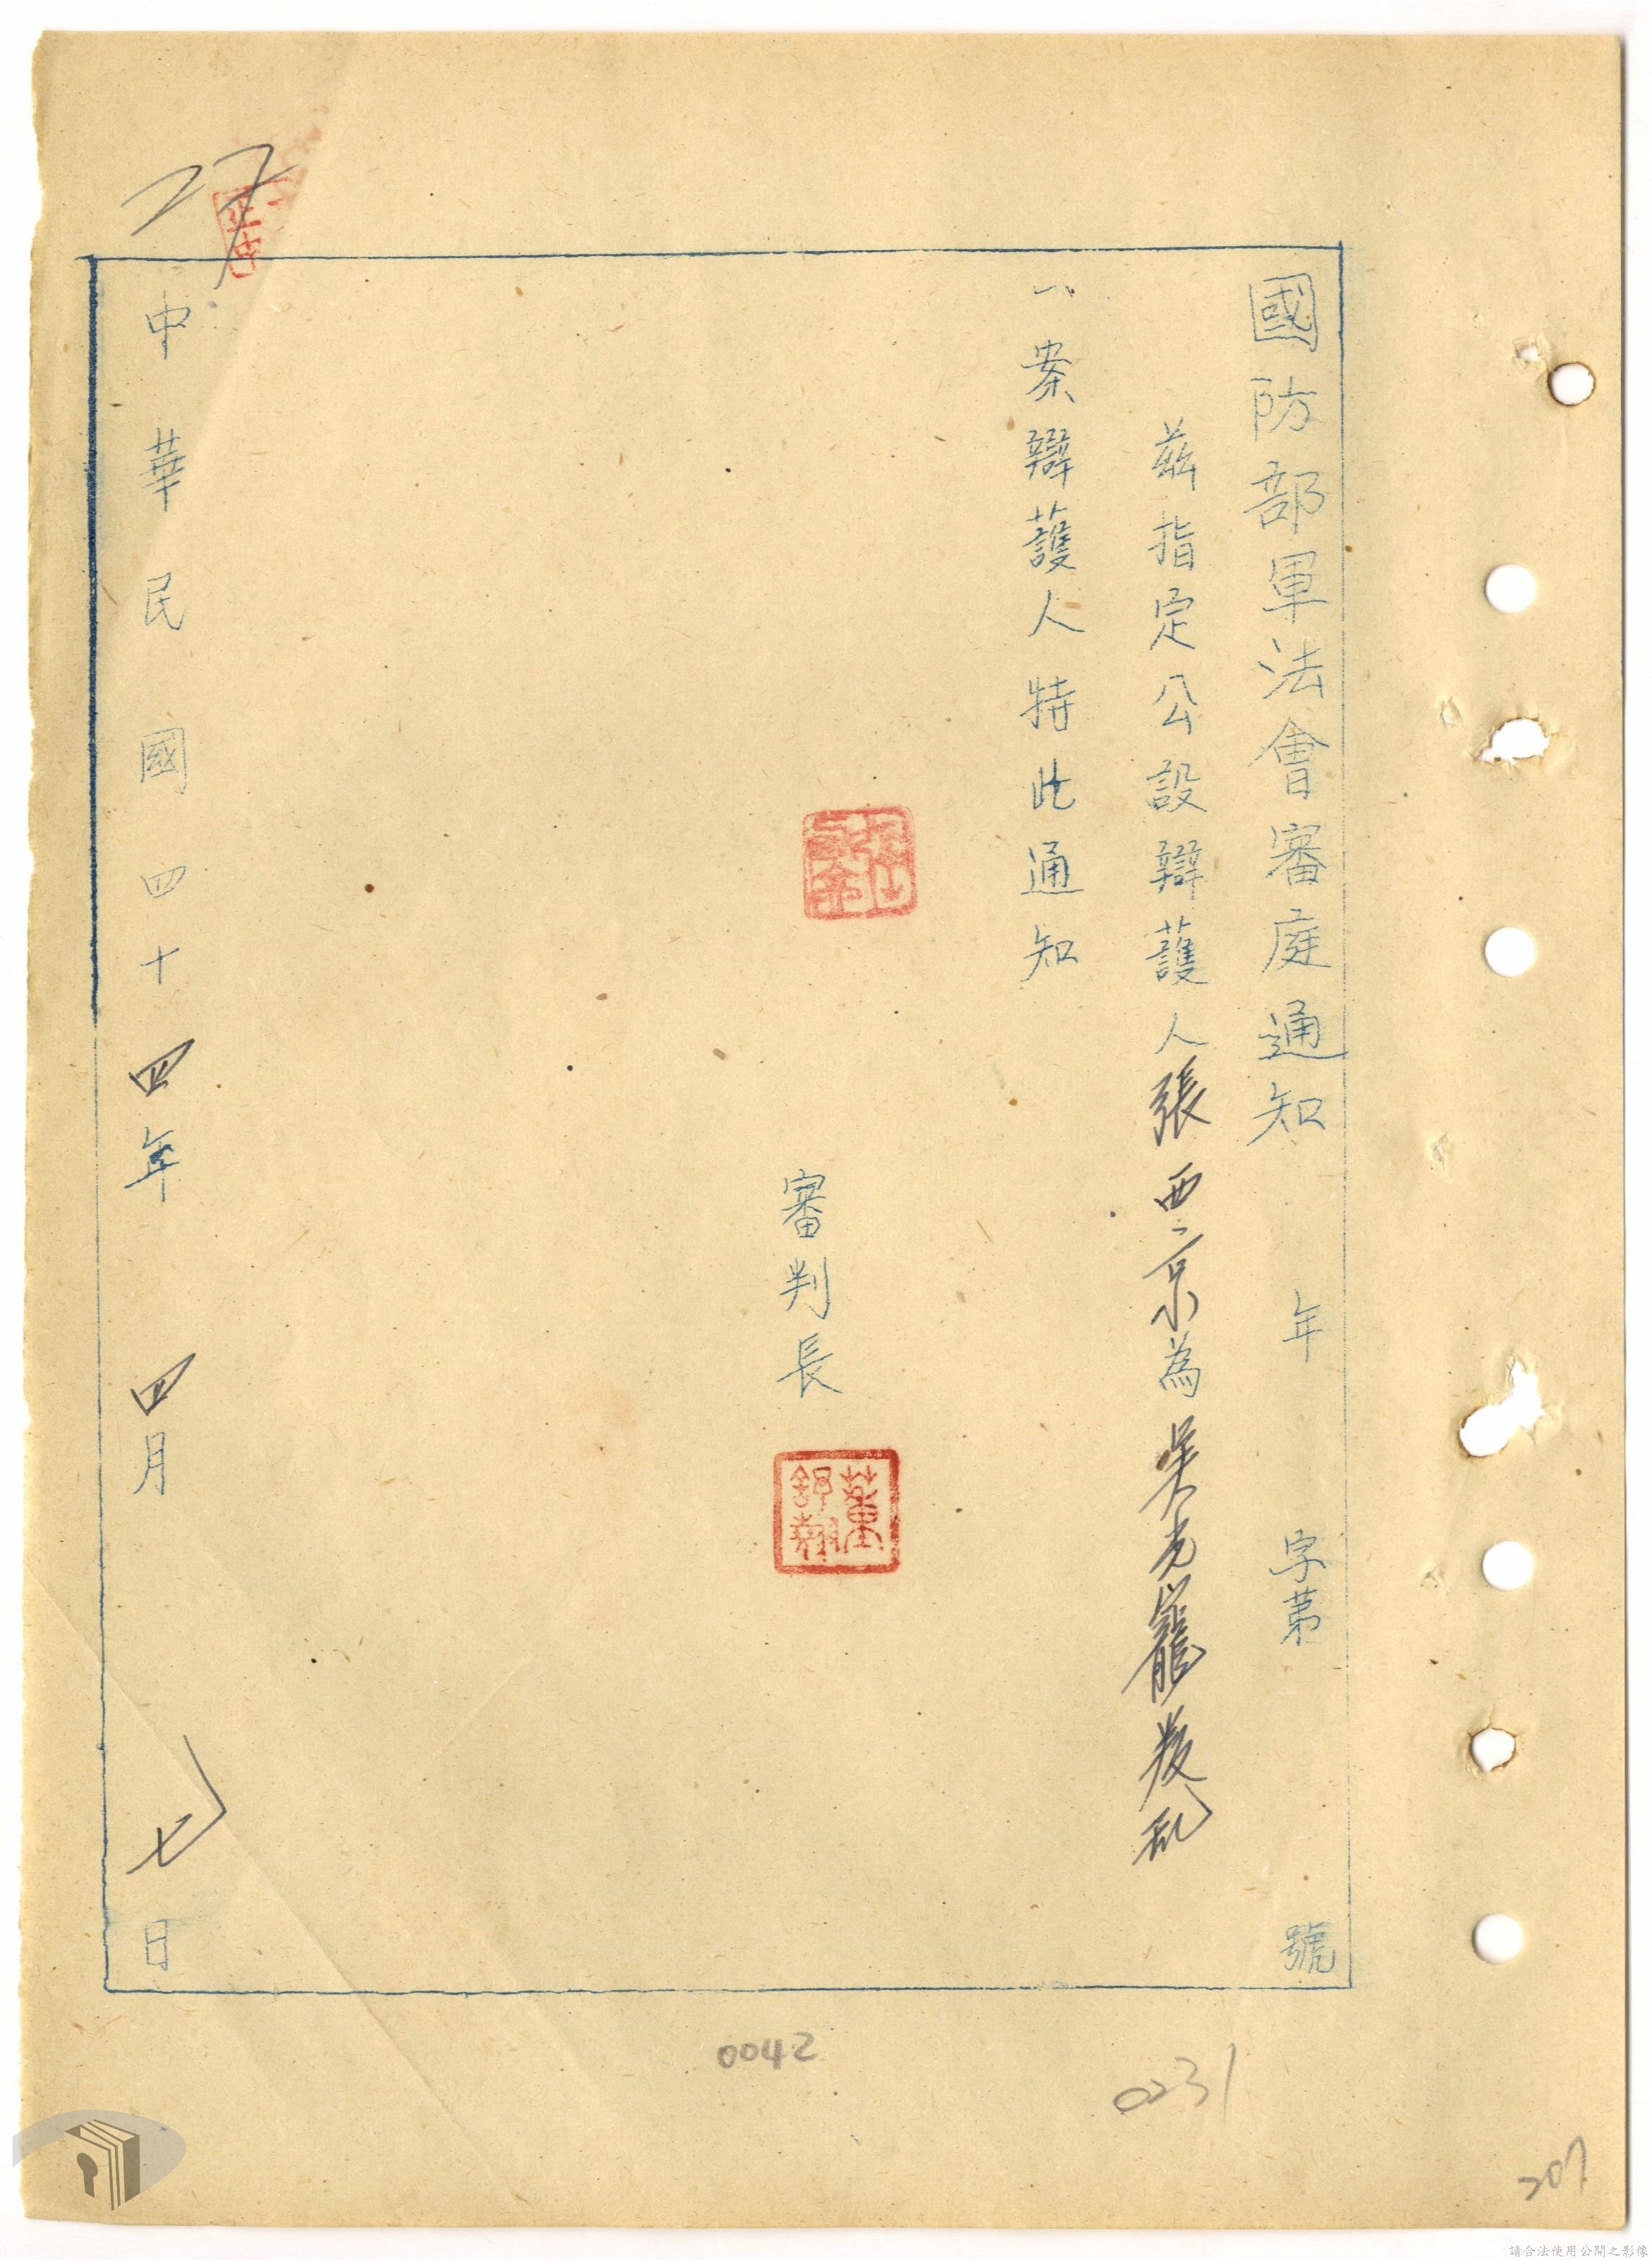 國防部軍法會審庭通知 年 字第 號
茲指定公設辯護人張西京為吳克寵叛乱
一案辯護人特此通知
審判長
董舒翰
中華民國四十四年四月七日
0042
0231
207
請合法使用公開之影像